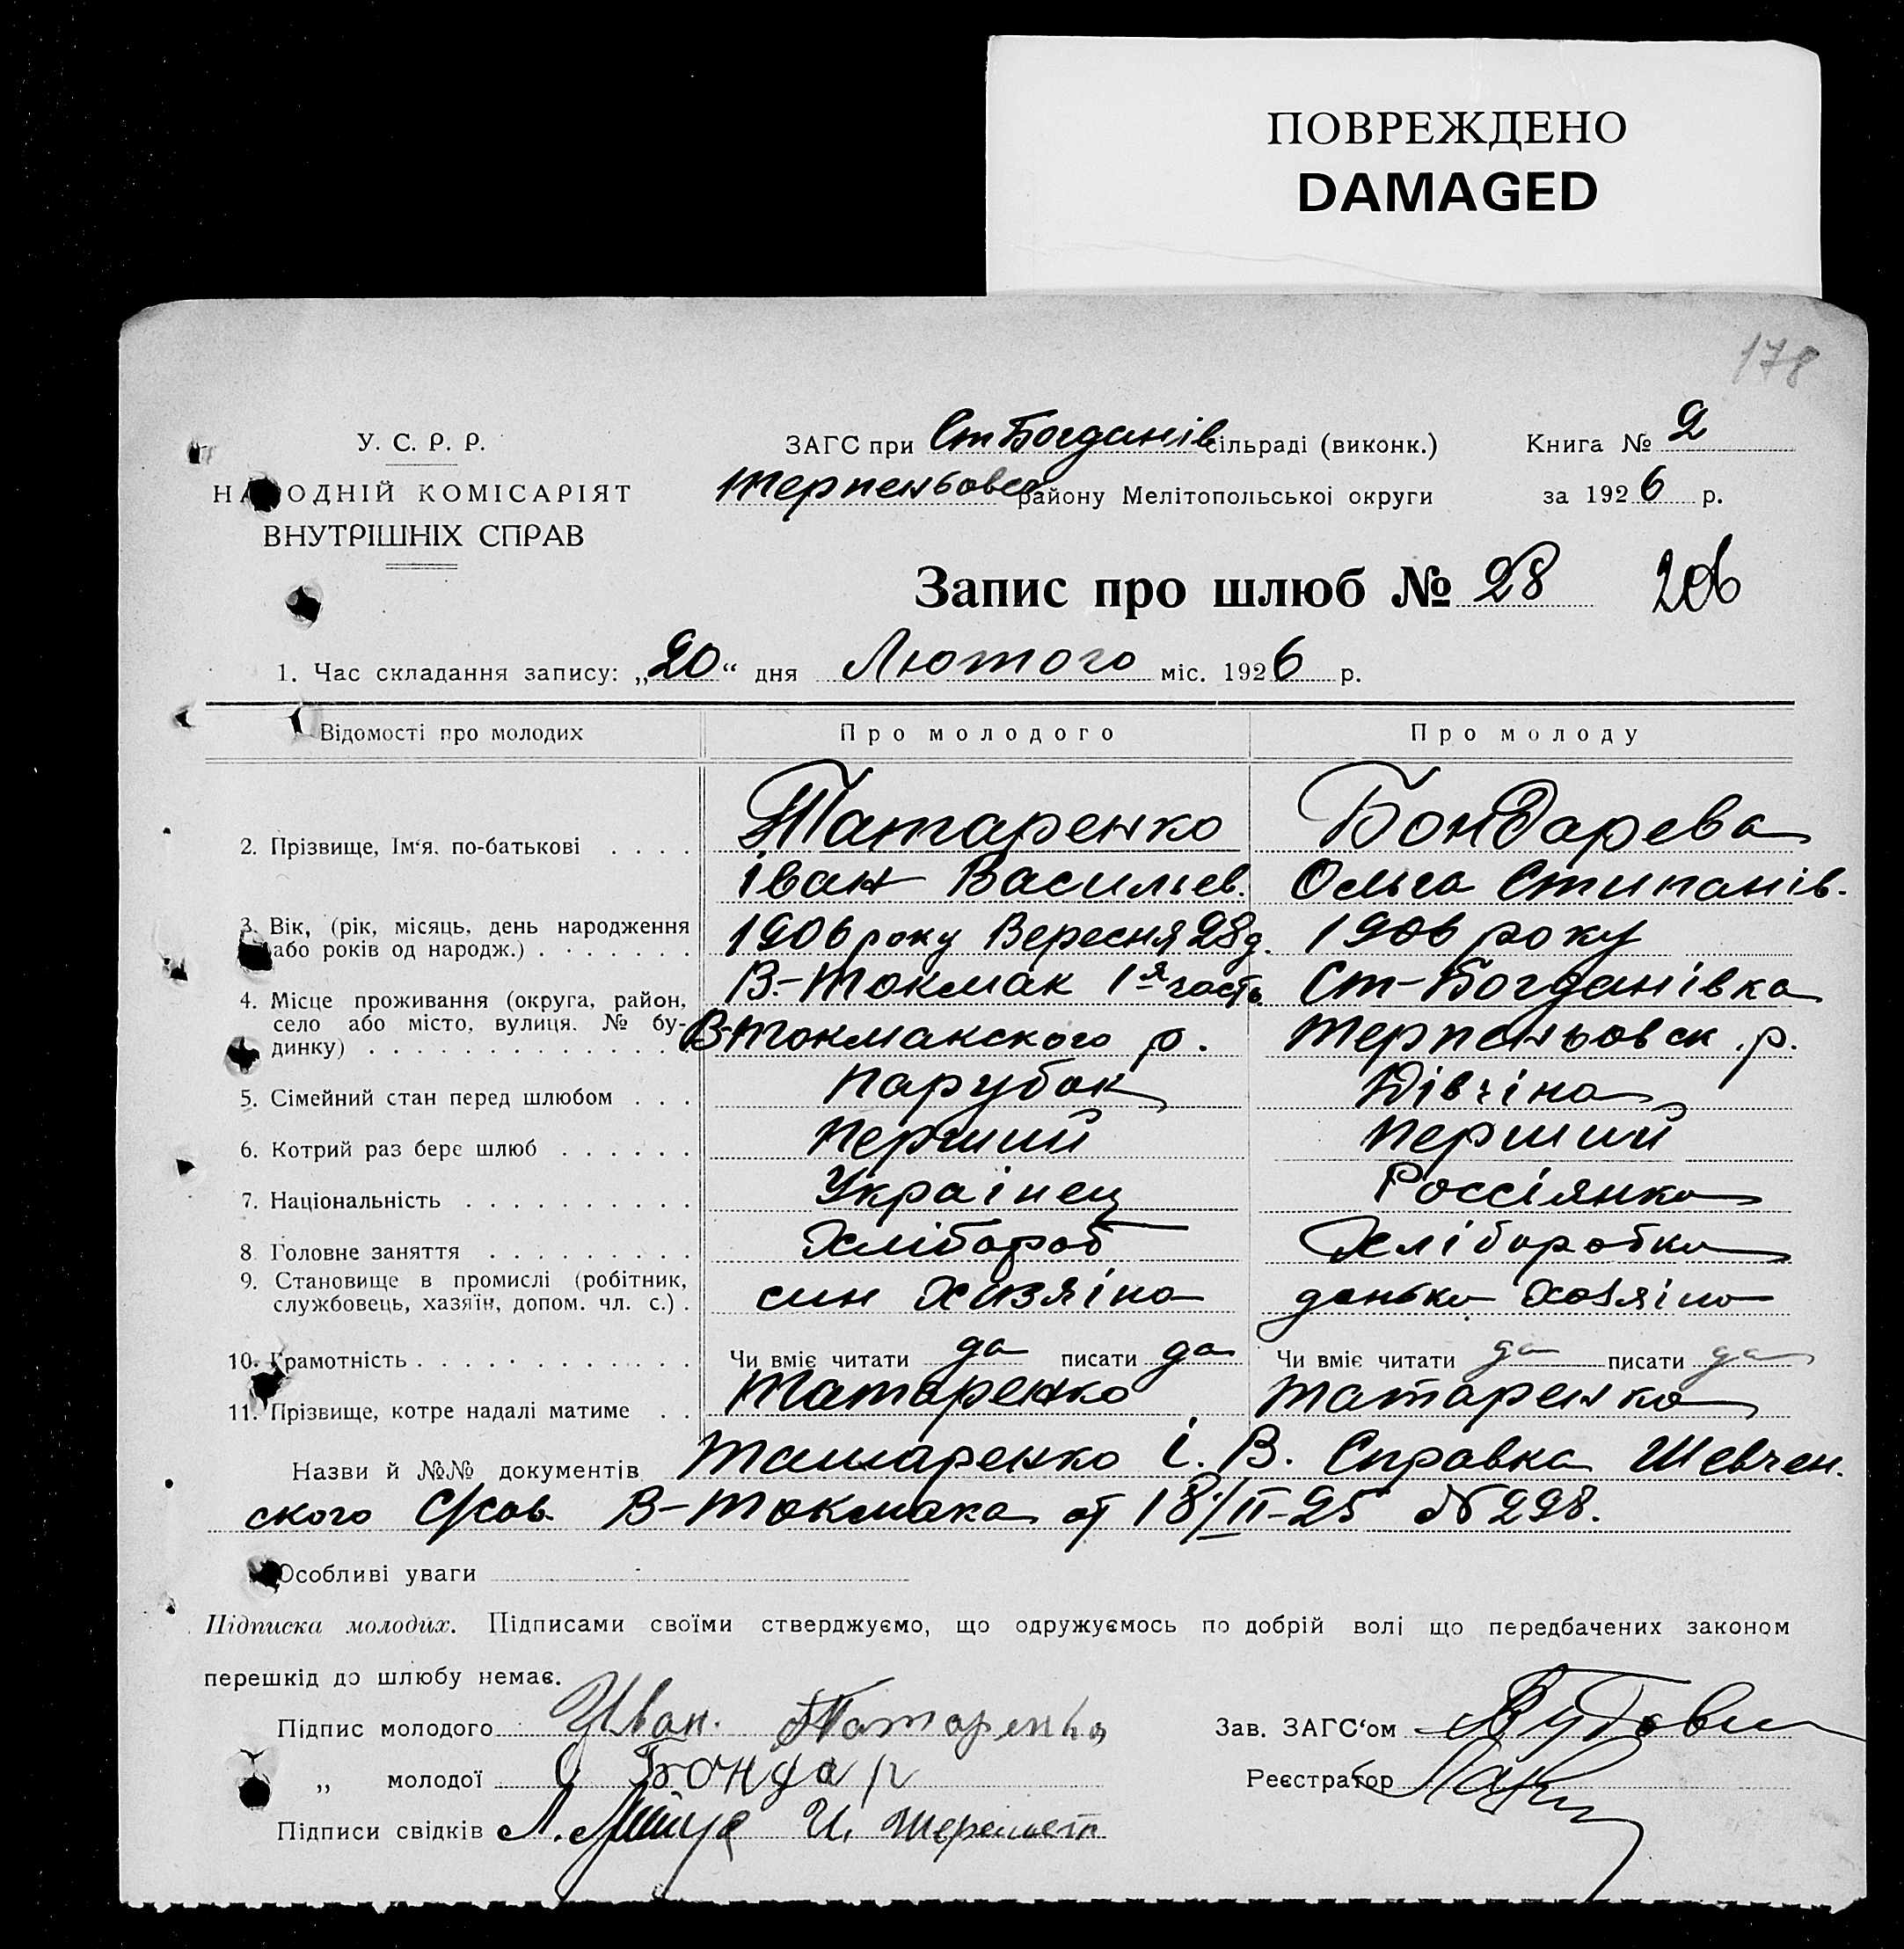 ПОВРЕЖДЕНО
DAMAGED
178
У. С. Р. Р.
НАРОДНІЙ КОМІСАРІЯТ
ВНУТРІШНІХ СПРАВ
ЗАГС при Ст Богданів сільраді (виконк.) Книга № 2
Терпеньовск району Мелітопольської округи за 1926 р.
Запис про шлюб № 28 206
1. Час складання запису: „20“ дня Лютого міс. 1926 р.
Відомості про молодих Про молодого Про молоду
2. Прізвище, Ім‘я. по-батькові . . . . Татаренко Бондарева
Іван Васильев. Ольга Стипанів.
3. Вік, (рік, місяць, день народження
або років од народж.) . . . . . . . 1906 року Вересня 28 д. 1906 року
4. Місце проживання (округа, район, В.-Токмак 1я часть Ст-Богданівка
село або місто, вулиця. № бу-
динку) . . . . . . . . . . . . . . В-Токмакского р. Терпеньовск. р.
5. Сімейний стан перед шлюбом . . . Парубок Дівчіна
6. Котрий раз бере шлюб . . . . . . Перший Перший
7. Національність . . . . . . . . . . Українец Россіянка
8 Головне заняття . . . . . . . . . Хлібороб Хліборобка
9. Становище в промислі (робітник,
службовець, хазяїн, допом. чл. с.) . син Хазяіна донька Хозяіна
10. Грамотність . . . . . . . . . . . . Чи вміє читати да писати да Чи вміє читати да писати да
11. Прізвище, котре надалі матиме . . Татаренко Татаренко
Назви й №№ документів Татаренко І. В. Справка Шевчен.
ского В-Токмака от 18/II-25 № 298.
Особливі уваги
Підписка молодих. Підписами своїми стверджуємо, що одружуємось по добрій волі що передбачених законом
перешкід до шлюбу немає.
Підпис молодого Иван. Татаренко Зав. ЗАГС‘ом
„ молодої О Бондар Реєстратор
Підписи свідків Л. И. Шеремет